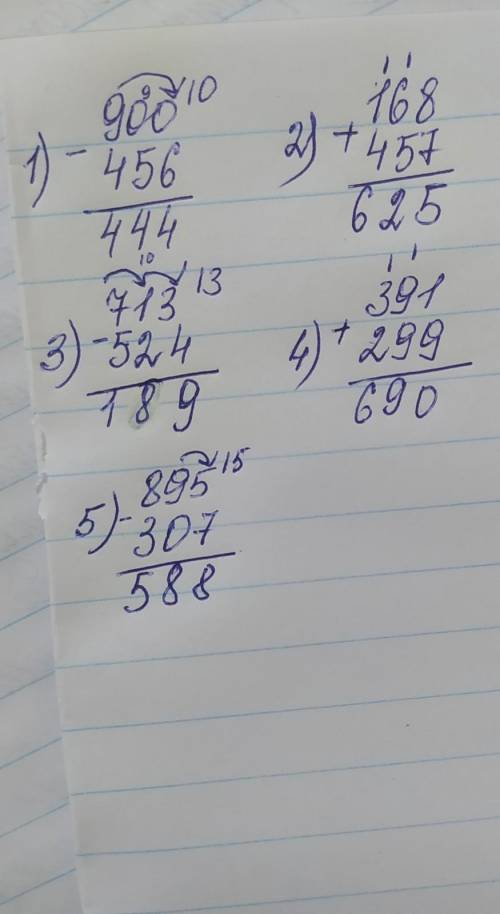 1) - 900 10
456
444
2) + 168
457
625
3) - 713 13
524
189
4) + 391
299
690
5) - 895 15
307
588